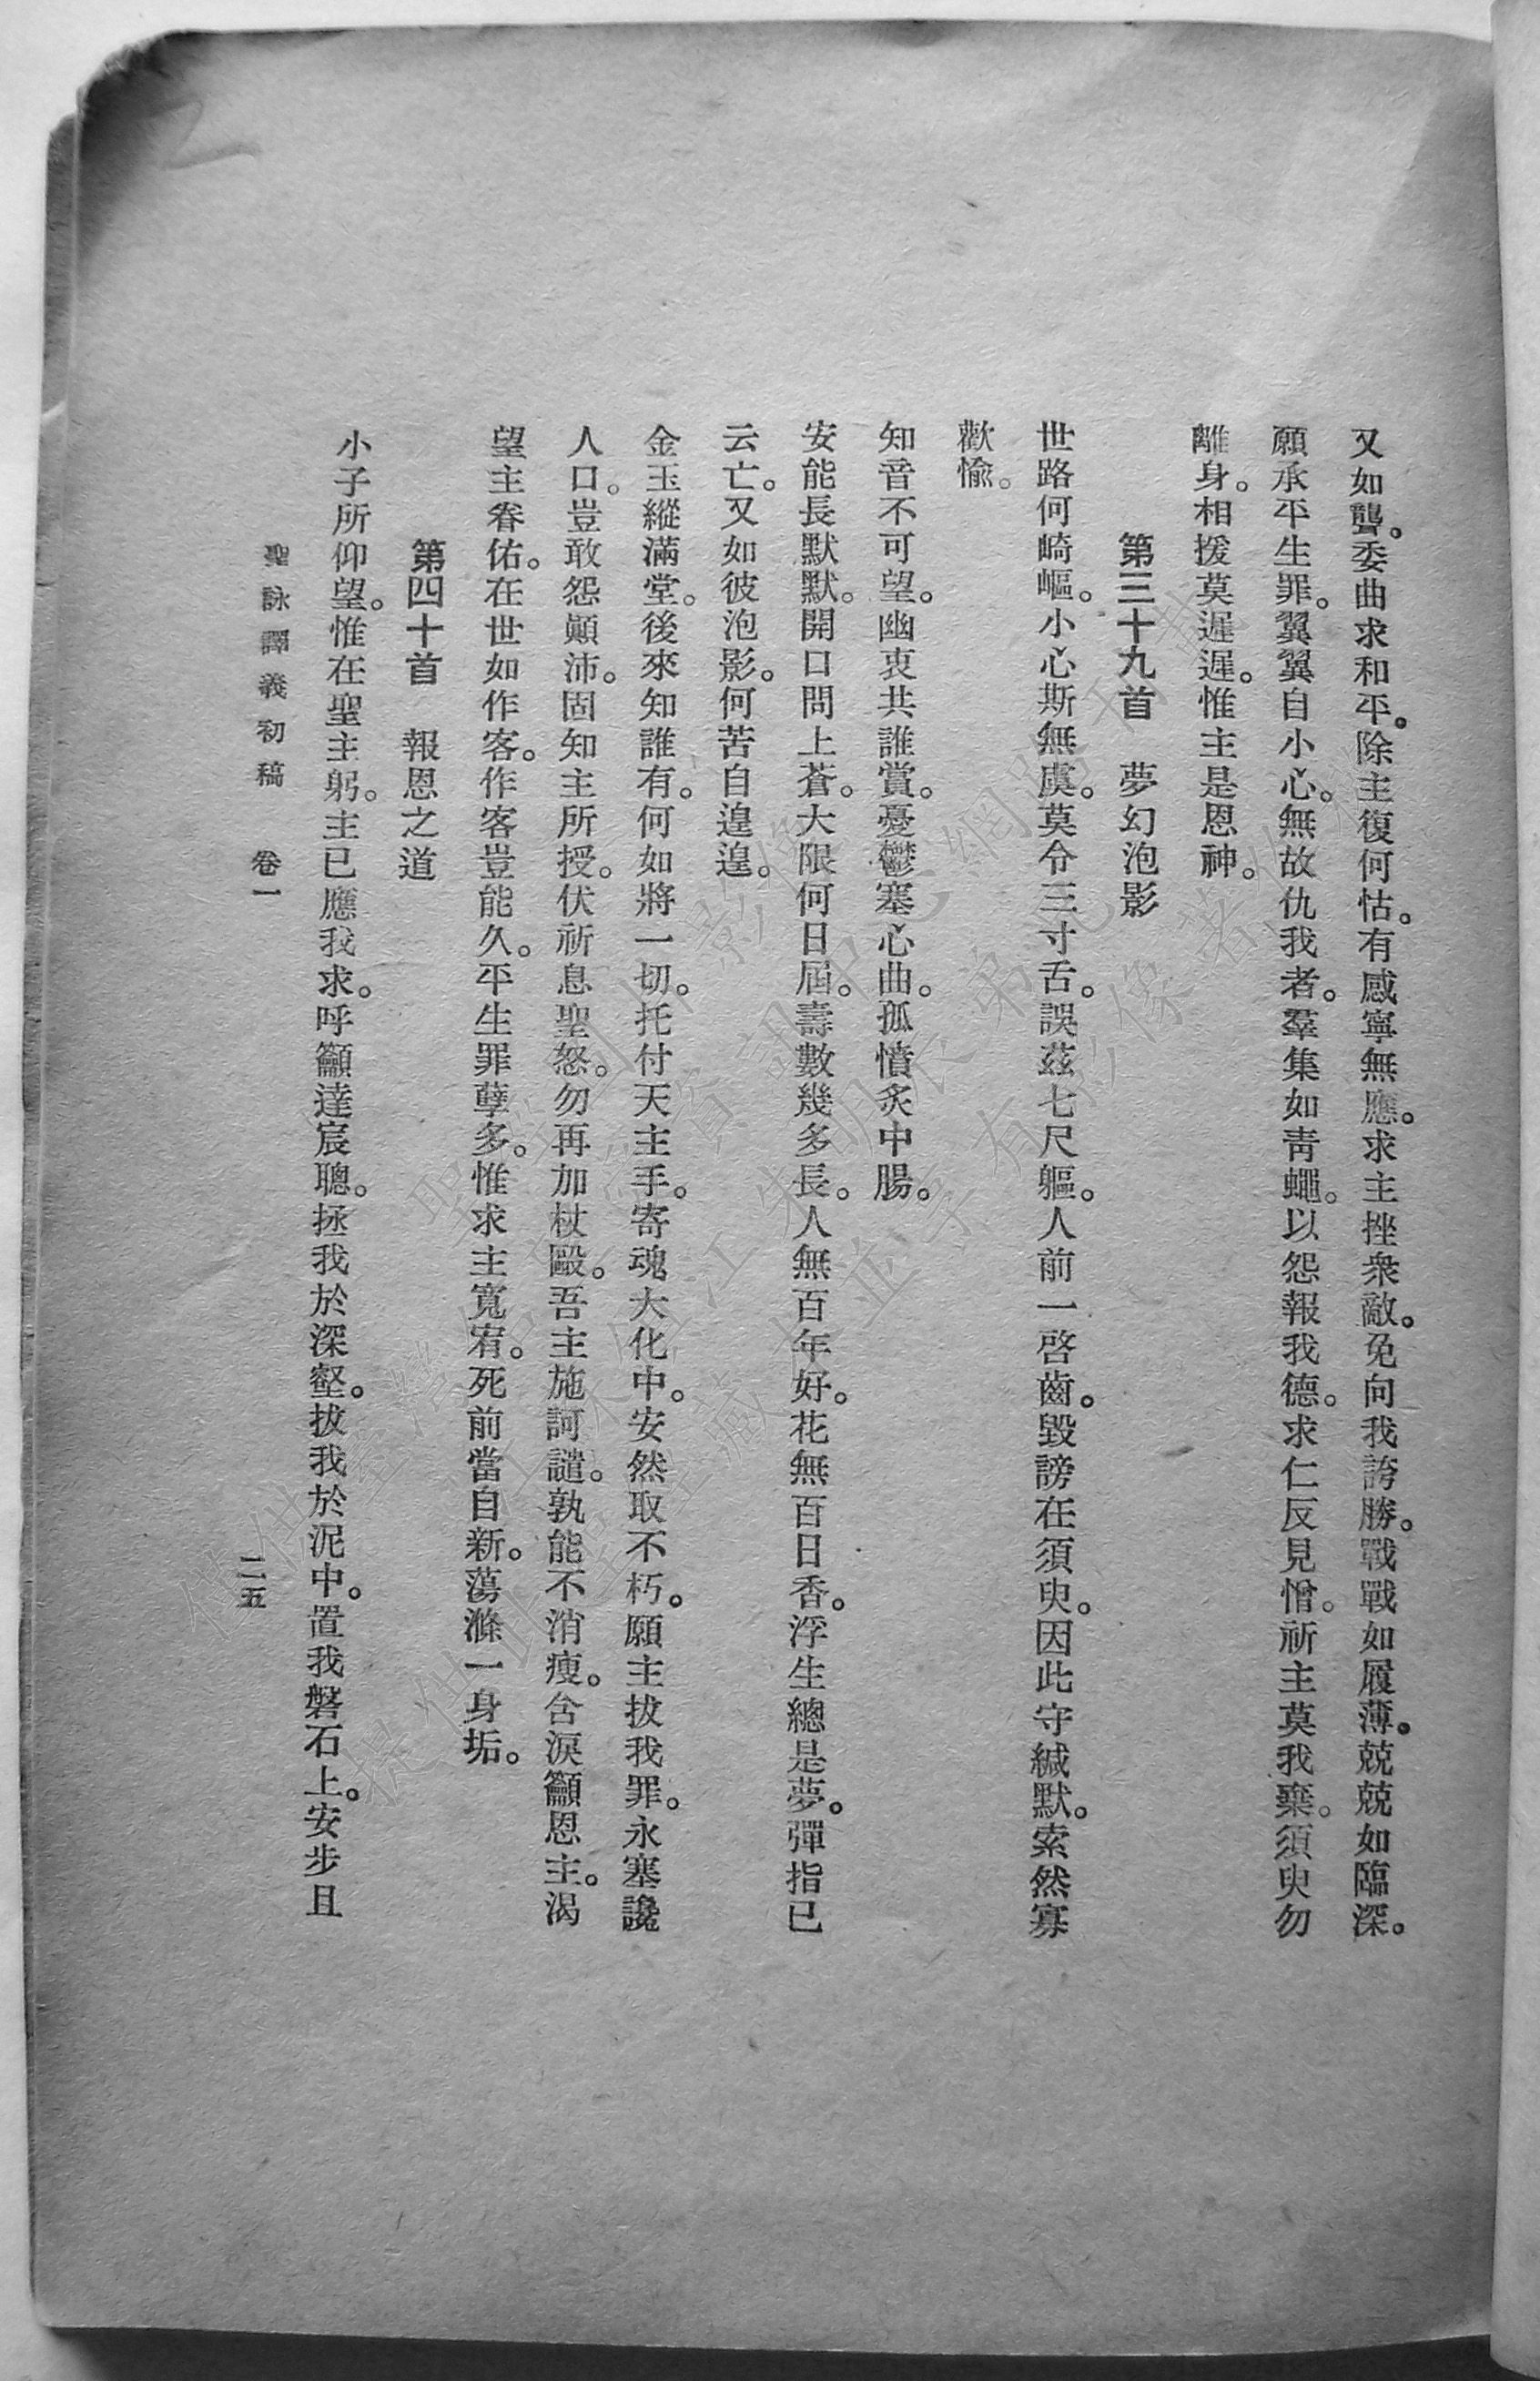 又如聾。委曲求和平。除主復何怙。有感寧無應。求主挫衆敵。免向我誇勝。戰戰如履薄。兢兢如臨深。
願承平生罪。翼翼自小心。無故仇我者。羣集如靑蠅。以怨報我德。求仁反見憎。祈主莫我棄。須臾勿
離身。相援莫遲遲。惟主是恩神。
第三十九首　夢幻泡影
世路何崎嶇。小心斯無虞。莫令三寸舌。誤茲七尺軀。人前一啓齒。毀謗在須臾。因此守緘默。索然寡
歡愉。
知音不可望。幽衷共誰賞。憂鬱塞心曲。孤憤炙中腸。
安能長默默。開口問上蒼。大限何日屆。壽數幾多長。人無百年好。花無百日香。浮生總是夢。彈指已
云亡。又如彼泡影。何苦自遑遑。
金玉縱滿堂。後來知誰有。何如將一切。托付天主手。寄魂大化中。安然取不朽。願主拔我罪。永塞讒
人口。豈敢怨顚沛。固知主所授。伏祈息聖怒。勿再加杖毆。吾主施訶譴。孰能不消瘦。含淚籲恩主。渴
望主眷佑。在世如作客。作客豈能久。平生罪孽多。惟求主寬宥。死前當自新。蕩滌一身垢。
第四十首　報恩之道
小子所仰望。惟在聖主躬。主已應我求。呼籲達宸聰。拯我於深壑。拔我於泥中。置我磐石上。安步且
聖詠譯義初稿　卷一　二五